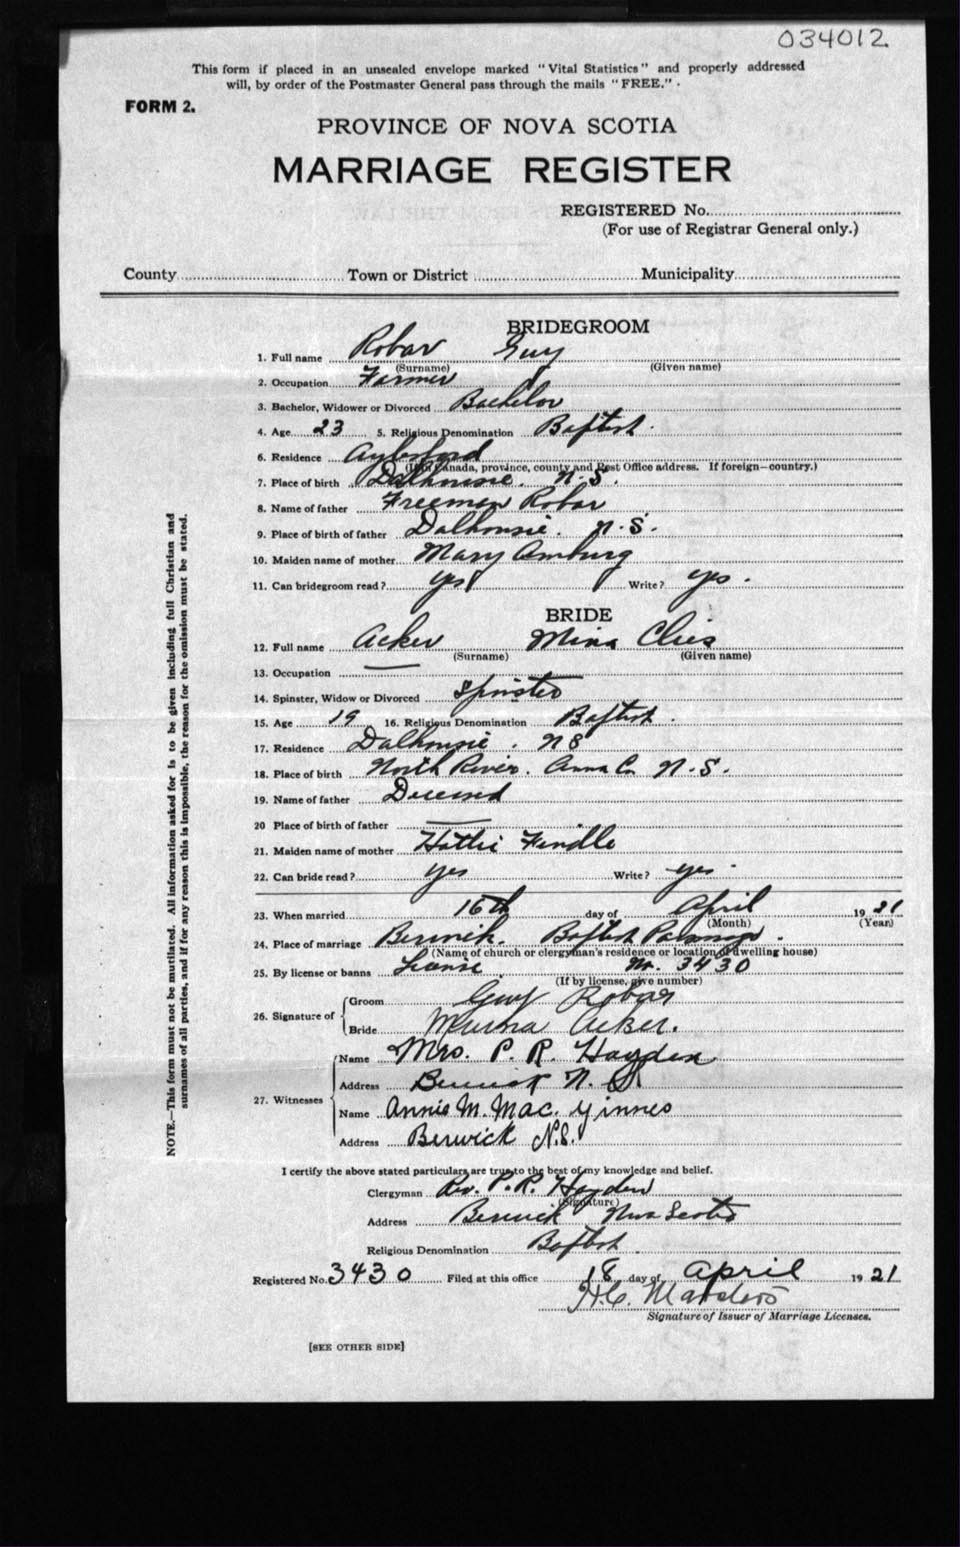 034012
This form if placed in an unsealed envelope marked "Vital Statistics" and properly addressed
will, by order of the Postmaster General pass through the mails "FREE."
FORM 2.
PROVINCE OF NOVA SCOTIA
MARRIAGE REGISTER
REGISTERED No.
(For use of Registrar General only.)
County Town or District Municipality
BRIDEGROOM
1. Full name Robar Guy
(Surname) (Given name)
2. Occupation Farmer
3. Bachelor, Widower or Divorced Bachelor
4. Age 23 5. Religious Denomination Baptist.
6. Residence Aylesford
(If of Canada, province, county and Post Office address. If foreign—country.)
7. Place of birth Dalhousie. N.S.
8. Name of father Freeman Robar
9. Place of birth of father Dalhousie. N.S.
10. Maiden name of mother Mary Amburg
11. Can bridegroom read? yes Write? yes.
BRIDE
12. Full name Acker Mina
(Surname) (Given name)
13. Occupation —
14. Spinster, Widow or Divorced Spinster
15. Age 19 16. Religious Denomination Baptist.
17. Residence Dalhousie. N S
18. Place of birth North River. Anna Co. N.S.
19. Name of father Deceased
20 Place of birth of father —
21. Maiden name of mother Hattie
22. Can bride read? yes Write? yes
23. When married 16th day of April 1921
(Month) (Year)
24. Place of marriage Berwick. Baptist Parsonage.
(Name of church or clergyman's residence or location of dwelling house)
25. By license or banns License. No. 3430
(If by license, give number)
26. Signature of
Groom Guy Robar
Bride Acker.
27. Witnesses
Name Mrs. P. R. Hayden
Address Berwick N. S
Name Annie M. Mac. Ginnes
Address Berwick N.S.
NOTE.—This form must not be mutilated. All information asked for is to be given including full Christian and
surnames of all parties, and if for any reason this is impossible, the reason for the omission must be stated.
I certify the above stated particulars are true to the best of my knowledge and belief.
Clergyman Rev. P. R. Hayden
(Signature)
Address Berwick Nova Scotia
Religious Denomination Baptist.
Registered No. 3430 Filed at this office 18 day of April 1921
H.C.
Signature of Issuer of Marriage Licenses.
[SEE OTHER SIDE]